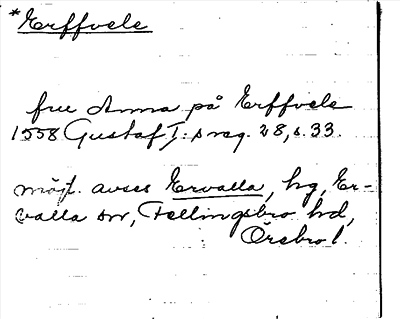 *Erffvele
fru Anna på Erffvele
1558 Gustaf I:s reg. 28, s. 33.
möjl. avses Ervalla, hg, Er-
valla sn, Fellingsbro hd,
Örebro l.